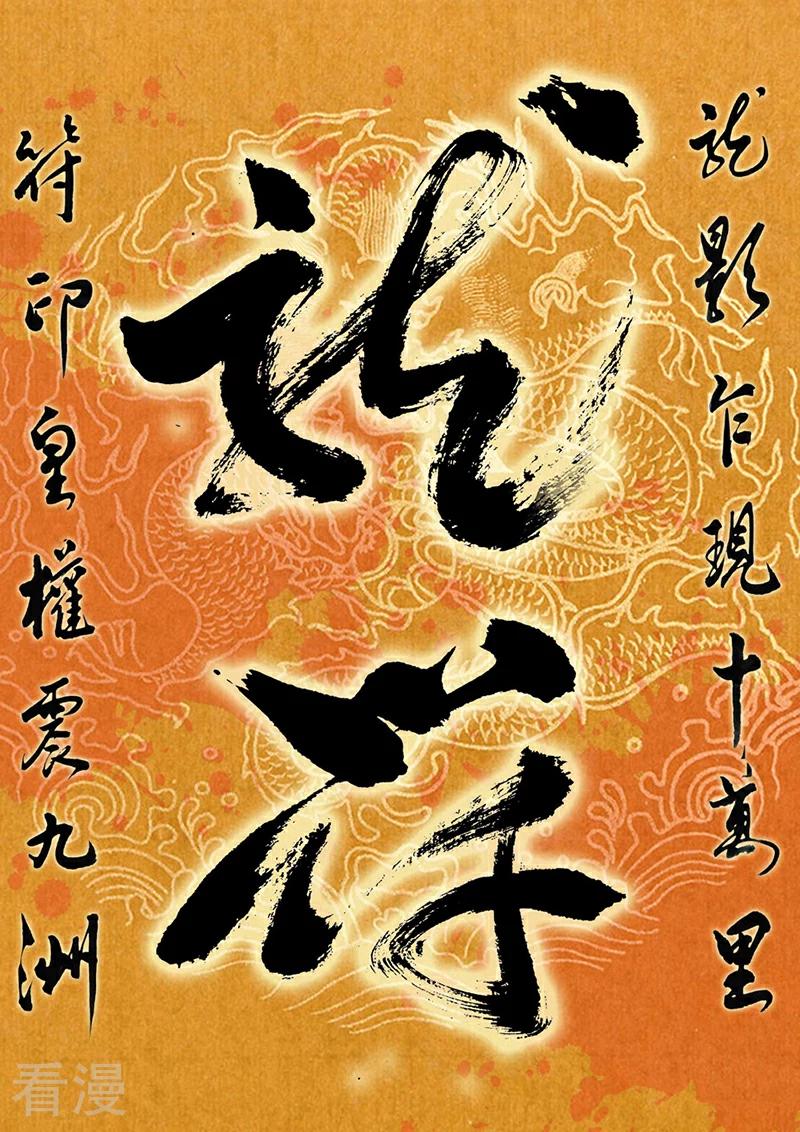 龍影乍現十萬里
龍符
符印皇權震九洲
看漫